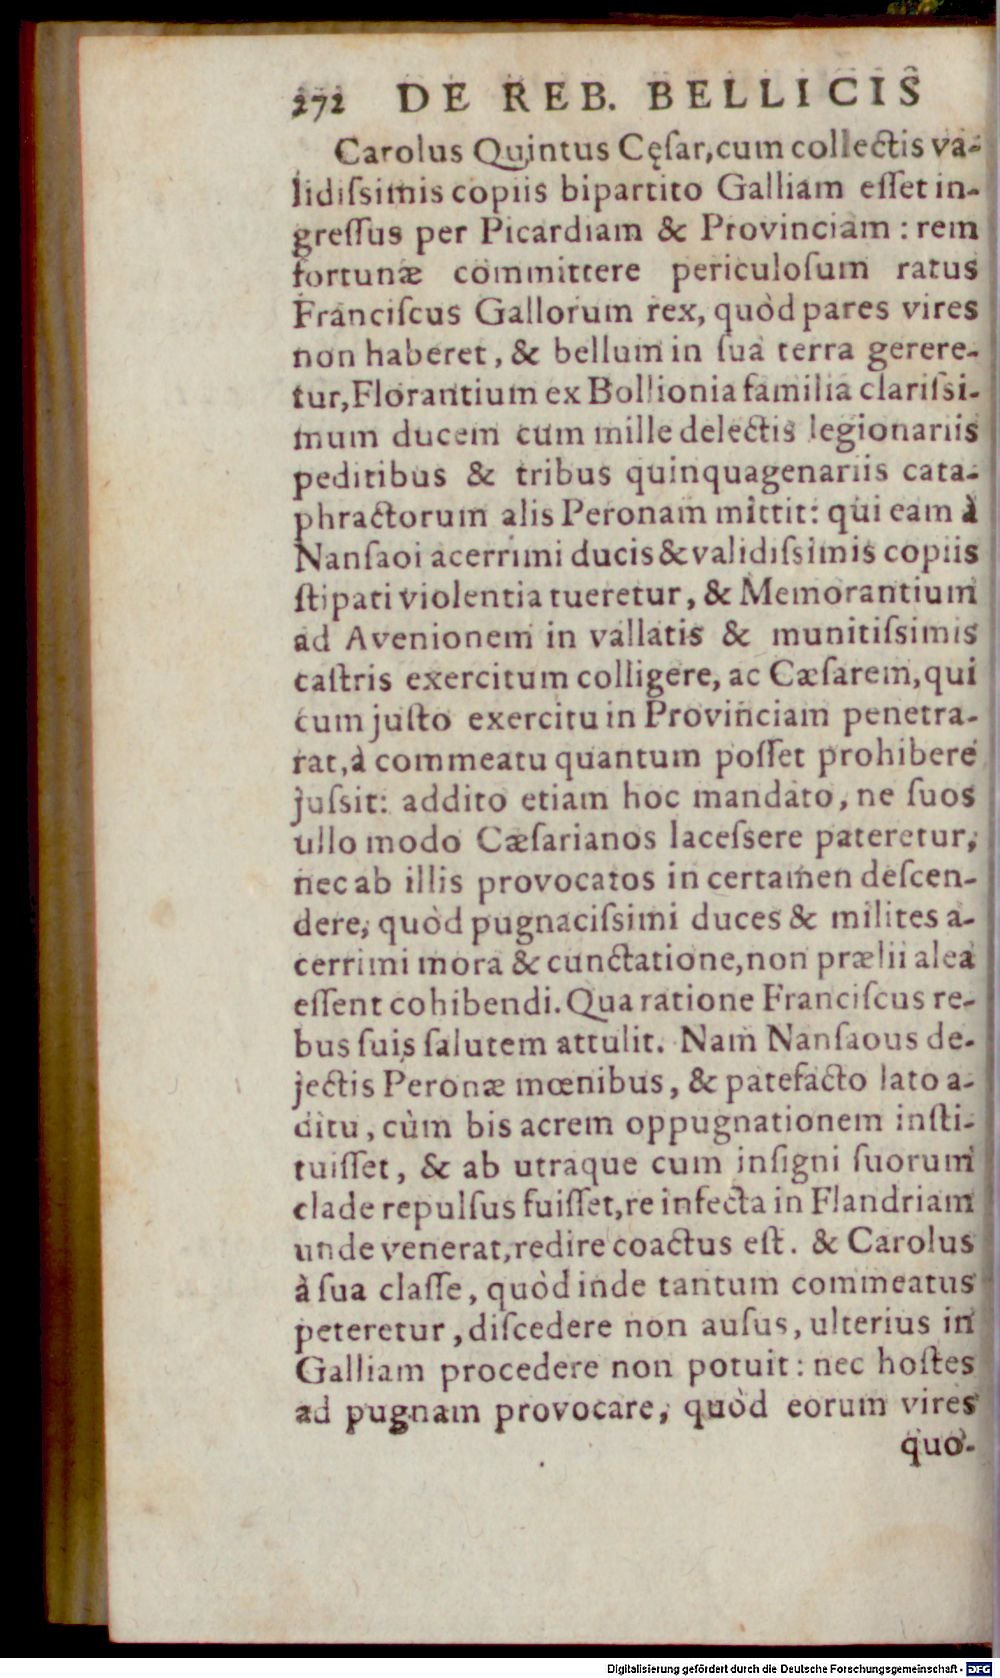 272 DE REB. BELLICIS
Carolus Quintus Cęſar, cum collectis va-
lidiſsimis copiis bipartito Galliam eſſet in-
greſſus per Picardiam & Provinciam : rem
fortunæ committere periculoſum ratus
Franciſcus Gallorum rex, quòd pares vires
non haberet, & bellum in ſua terra gerere-
tur, Florantium ex Bollionia familia clariſsi-
mum ducem cum mille delectis legionariis
peditibus & tribus quinquagenariis cata-
phractorum alis Peronam mittit: qui eam à
Nanſaoi acerrimi ducis & validiſsimis copiis
ſtipati violentia tueretur, & Memorantium
ad Avenionem in vallatis & munitiſsimis
caſtris exercitum colligere, ac Cæſarem, qui
cum juſto exercitu in Provinciam penetra-
rat, à commeatu quantum poſſet prohibere
juſsit: addito etiam hoc mandato, ne ſuos
ullo modo Cæſarianos laceſsere pateretur,
nec ab illis provocatos in certamen deſcen-
dere, quòd pugnaciſsimi duces & milites a-
cerrimi mora & cunctatione, non prælii alea
eſſent cohibendi. Qua ratione Franciſcus re-
bus ſuis ſalutem attulit. Nam Nanſaous de-
jectis Peronæ mœnibus, & patefacto lato a-
ditu, cùm bis acrem oppugnationem inſti-
tuiſſet, & ab utraque cum inſigni ſuorum
clade repulſus fuiſſet, re infecta in Flandriam
unde venerat, redire coactus eſt. & Carolus
à ſua claſſe, quòd inde tantum commeatus
peteretur, diſcedere non auſus, ulterius in
Galliam procedere non potuit : nec hoſtes
ad pugnam provocare, quòd eorum vires
quo-
Digitalisierung gefördert durch die Deutsche Forschungsgemeinschaft - DFG